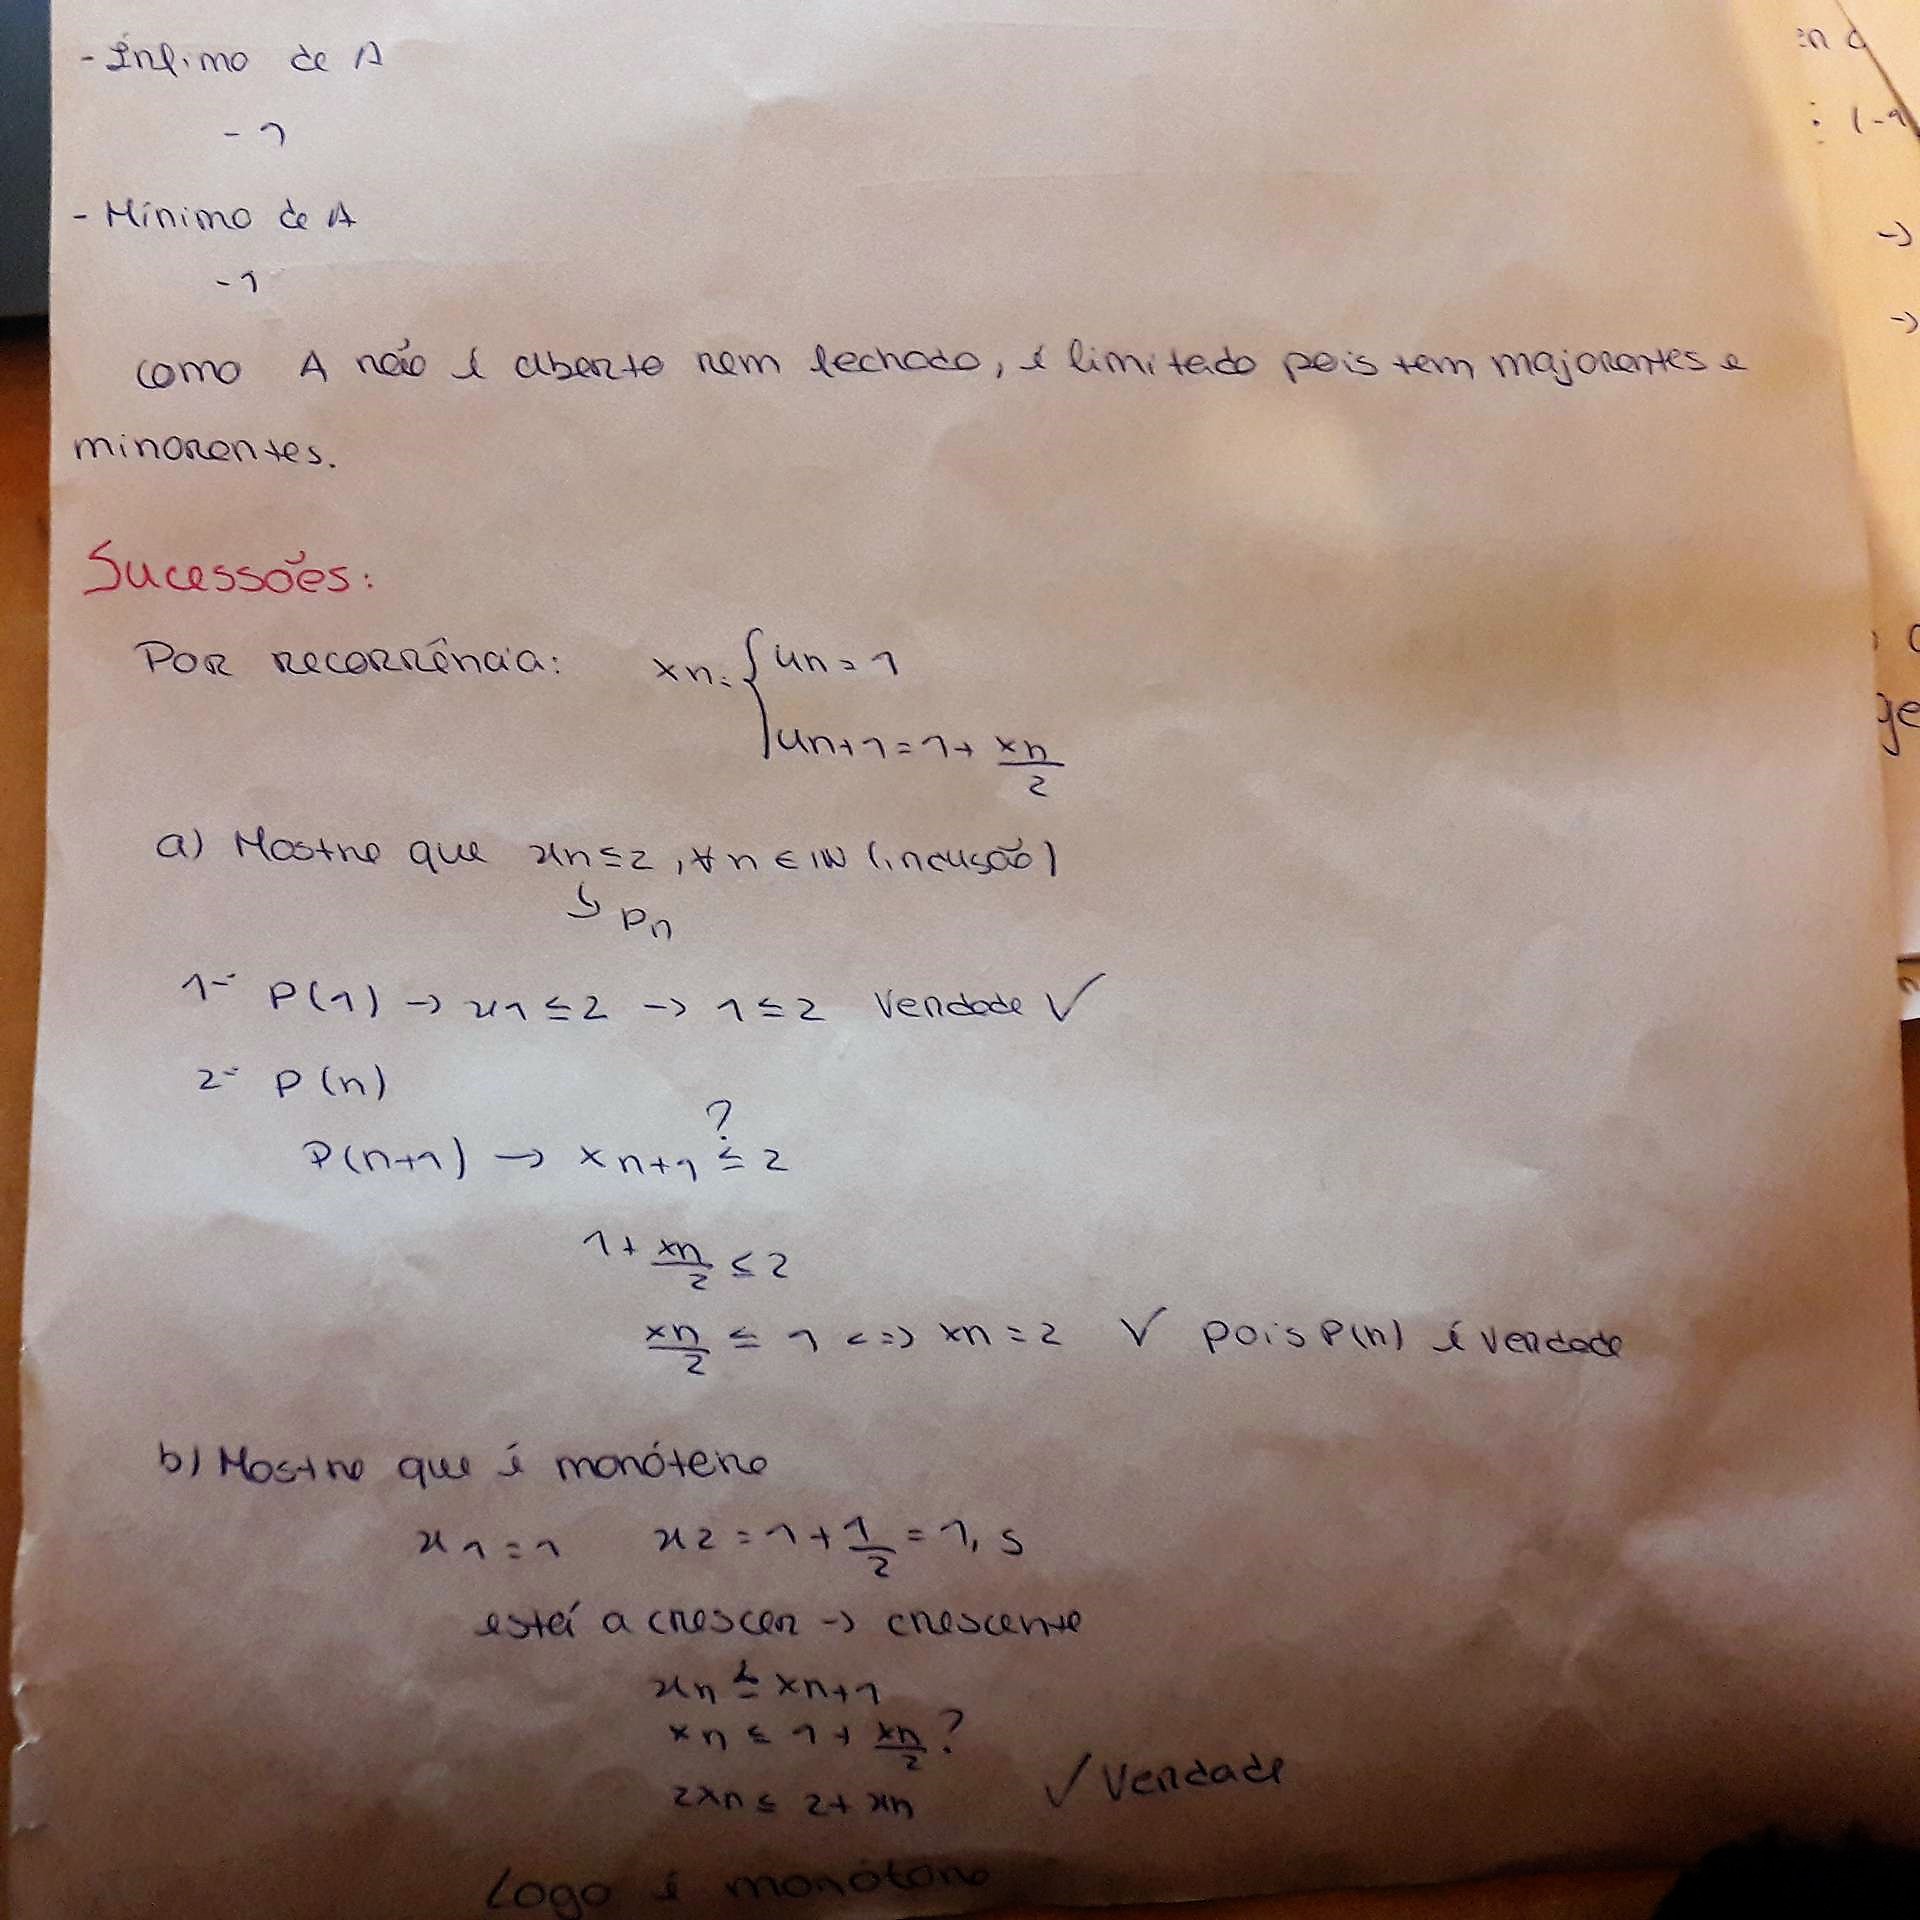 - Ínfimo de A
- 1
- Mínimo de A
- 1
como A não é aberto nem fechado, é limitado pois tem majorantes e
minorantes.
Sucessões:
Por recorrência: xn = { un = 1
un+1 = 1 + xn/2
a) Mostre que xn ≤ 2, ∀ n ∈ IN (incusão)
↳ Pn
1- P(1) → x1 ≤ 2 → 1 ≤ 2 Verdade ✓
2- P(n)
?
P(n+1) → xn+1 ≤ 2
1 + xn/2 ≤ 2
xn/2 ≤ 1 <=> xn = 2 ✓ pois P(n) é verdade
b) Mostre que é monótona
x1 = 1 x2 = 1 + 1/2 = 1,5
está a crescer → crescente
xn ≤ xn+1
xn ≤ 1 + xn/2 ?
2xn ≤ 2 + xn ✓ Verdade
Logo é monótona